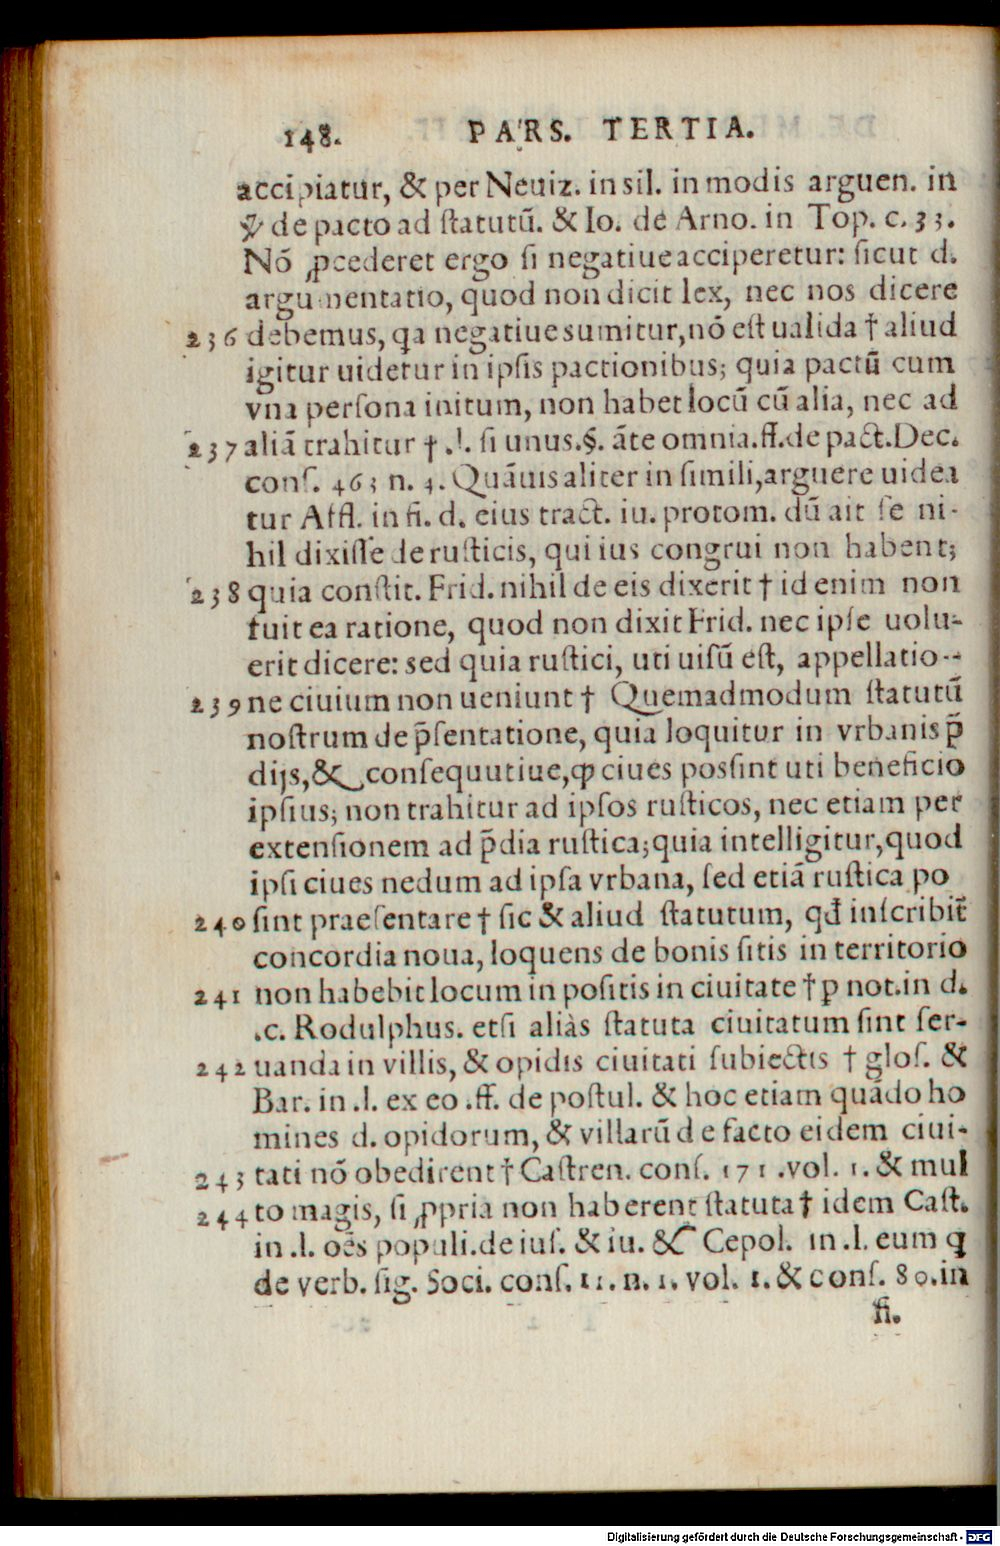 148. PARS. TERTIA.
accipiatur, & per Neuiz. in sil. in modis arguen. in
℣ de pacto ad statutũ. & Io. de Arno. in Top. c. 33.
Nõ ꝓcederet ergo si negatiue acciperetur: sicut d.
argumentatio, quod non dicit lex, nec nos dicere
236 debemus, qa negatiue sumitur, nõ est ualida † aliud
igitur uidetur in ipsis pactionibus; quia pactũ cum
vna persona initum, non habet locũ cũ alia, nec ad
237 aliã trahitur † .l. si unus.§. ãte omnia.ff.de pact.Dec.
cons. 463 n. 4. Quãuis aliter in simili, arguere uidea
tur Affl. in fi. d. eius tract. iu. protom. dũ ait se ni-
hil dixisse de rusticis, qui ius congrui non habent;
238 quia constit. Frid. nihil de eis dixerit † id enim non
fuit ea ratione, quod non dixit Frid. nec ipse uolu-
erit dicere: sed quia rustici, uti uisũ est, appellatio-
239 ne ciuium non ueniunt † Quemadmodum statutũ
nostrum de p̃sentatione, quia loquitur in vrbanis p̃
dijs, & consequutiue, ꝙ ciues possint uti beneficio
ipsius; non trahitur ad ipsos rusticos, nec etiam per
extensionem ad p̃dia rustica; quia intelligitur, quod
ipsi ciues nedum ad ipsa vrbana, sed etiã rustica po
240 sint praesentare † sic & aliud statutum, qđ inscribit̃
concordia noua, loquens de bonis sitis in territorio
241 non habebit locum in positis in ciuitate † p not. in d.
.c. Rodulphus. etsi aliàs statuta ciuitatum sint ser-
242 uanda in villis, & opidis ciuitati subiectis † glos. &
Bar. in .l. ex eo .ff. de postul. & hoc etiam quãdo ho
mines d. opidorum, & villarũ de facto eidem ciui-
243 tati nõ obedirent † Castren. cons. 171 .vol. 1. & mul
244 to magis, si ꝓpria non haberent statuta † idem Cast.
in .l. oẽs populi. de ius. & iu. & Cepol. in .l. eum q
de verb. sig. Soci. cons. 11. n. 1. vol. 1. & cons. 80. in
fi.
Digitalisierung gefördert durch die Deutsche Forschungsgemeinschaft - DFG